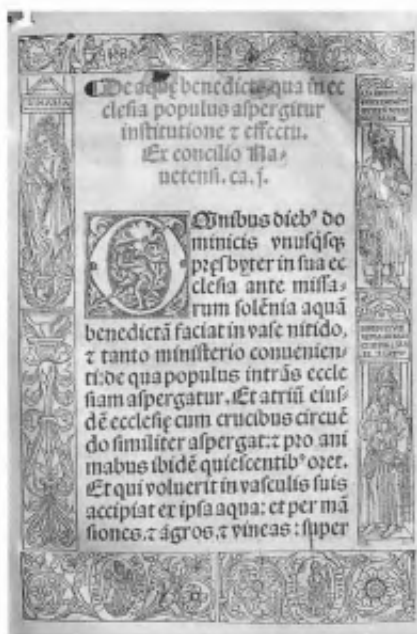 ¶ De aque benedictę qua in ec
clesia populus aspergitur
institutione ⁊ effectu.
Ex concilio Na⸗
netensi. ca. j.
OMnibus dieb⁹ do
minicis vnusq̇sq̧
pręsbyter in sua ec
clesia ante missa⸗
rum solēnia aquā
benedictā faciat in vase nitido,
⁊ tanto ministerio conuenien⸗
ti: de qua populus intrās eccle
siam aspergatur. Et atriū eius⸗
dē ecclesię cum crucibus circuē
do similiter aspergat: ⁊ pro ani
mabus ibidē quiescentib⁹ oret.
Et qui voluerit in vasculis suis
accipiat ex ipsa aqua: et per mā
siones. ⁊ agros. ⁊ vineas: super